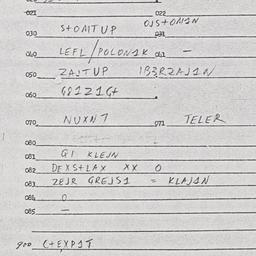 021 022
030 S+OMTUP OJS+OMIN
031
040 LEFL/POLONIK 041 -
050 ZAJTUP IBERZAJIN
060 G8IZIG+
070 NUXN T 071 TELER
080
081 GI KLEJN
082 DEXS+LAX XX O
083 ZEJR GREJSI = KLAJAN
084 O
085 -
900 C+EXPIT